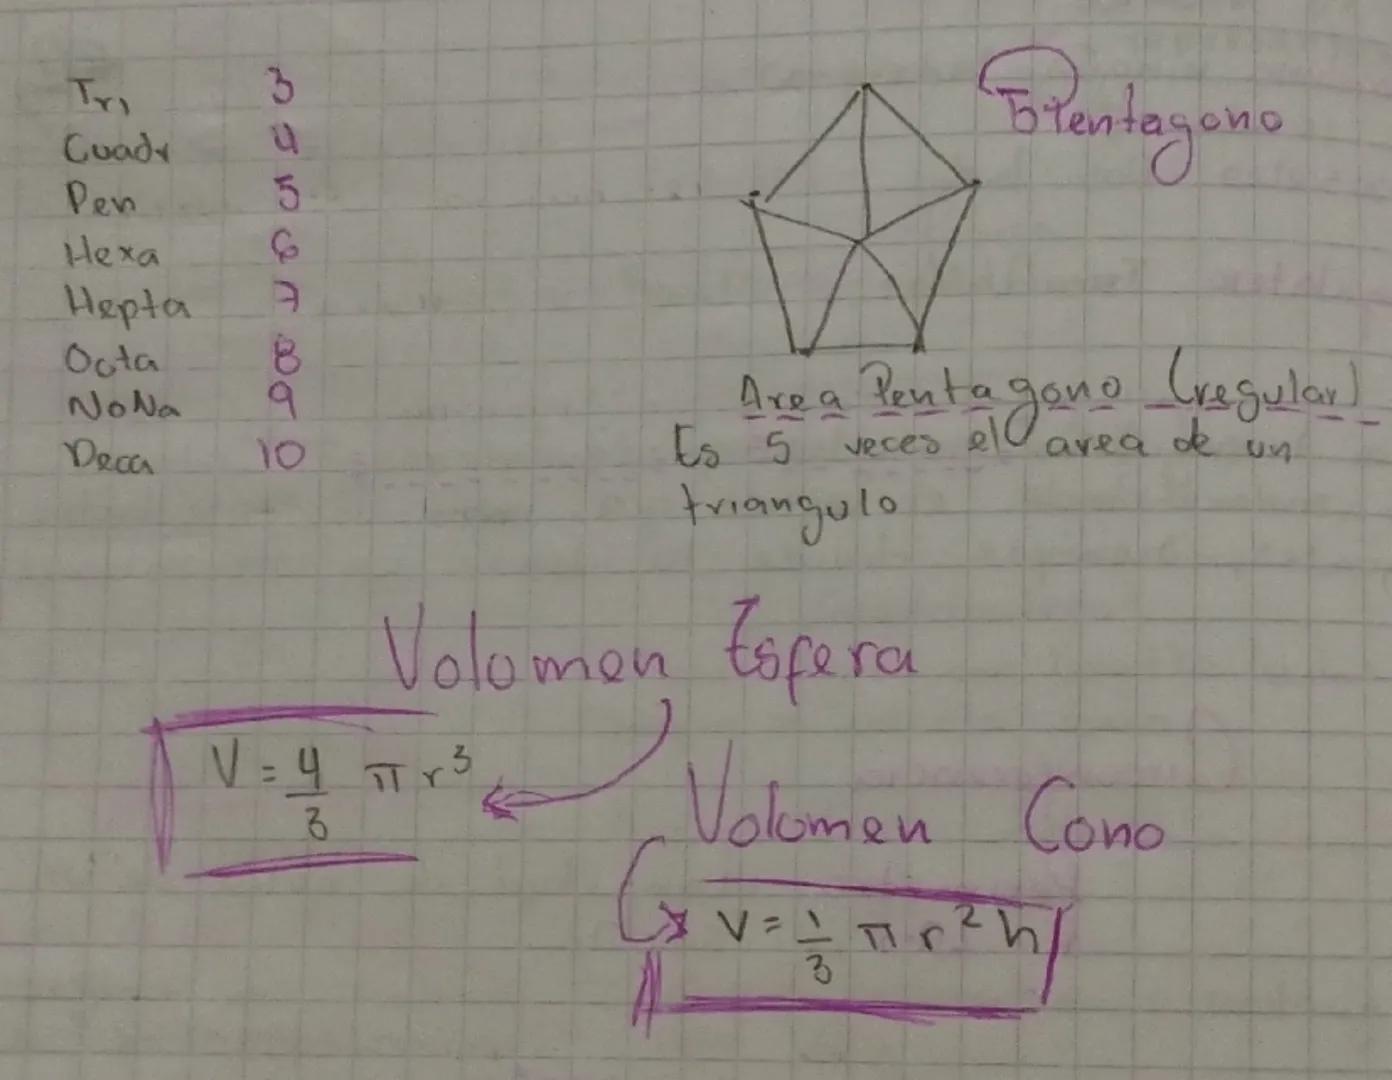 Tri 3
Cuadr 4
Pen 5
Hexa 6
Hepta 7
Octa 8
NoNa 9
Deca 10
Pentagono
Area Pentagono (regular)
Es 5 veces el area de un
triangulo
Volomen Esfera
V = 4/3 π r³
Volomen Cono
V = 1/3 π r² h